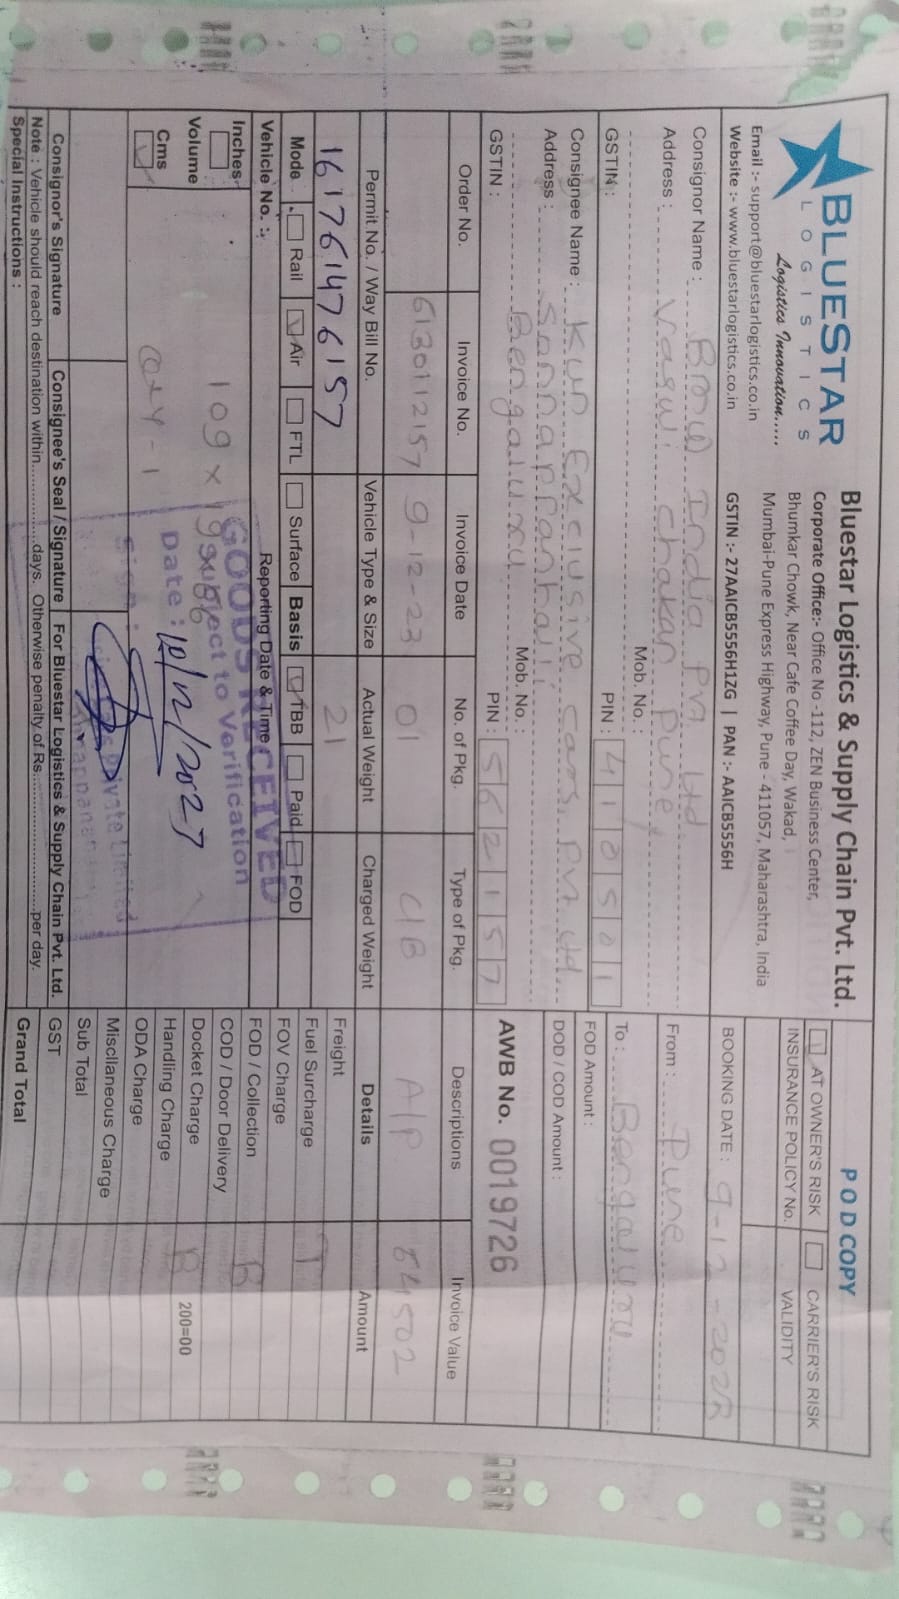 BLUESTAR
LOGISTICS
Logistics Innovation.....
Email :- support@bluestarlogistics.co.in
Website :- www.bluestarlogistics.co.in
Bluestar Logistics & Supply Chain Pvt. Ltd.
Corporate Office:- Office No -112, ZEN Business Center,
Bhumkar Chowk, Near Cafe Coffee Day, Wakad,
Mumbai-Pune Express Highway, Pune - 411057, Maharashtra, India
GSTIN :- 27AAICB5556H1ZG | PAN :- AAICB5556H
P O D COPY
AT OWNER'S RISK CARRIER'S RISK
INSURANCE POLICY No. VALIDITY
BOOKING DATE : 9-12-2023
Consignor Name : BMW India Pvt Ltd
Address : Vasuli Chakan Pune
Mob. No. :
GSTIN : PIN : 410501
From : Pune
To : Bengaluru
FOD Amount :
DOD / COD Amount :
Consignee Name : Kun Exclusive Cars Pvt Ltd
Address : Sonnappanhalli
Bengaluru Mob. No. :
GSTIN : PIN : 562157
AWB No. 0019726
Order No. Invoice No. Invoice Date No. of Pkg. Type of Pkg. Descriptions Invoice Value
6130112157 9-12-23 01 C/B A/P 64502
Permit No. / Way Bill No. Vehicle Type & Size Actual Weight Charged Weight Details Amount
161761476157 21
Mode Rail Air FTL Surface Basis TBB Paid FOD
Vehicle No. : Reporting Date & Time :
Inches
Volume
Cms
109 x 19 x 86
QTY-1
GOODS RECEIVED
Subject to Verification
Date : 10/12/2023
Sign :
Private Limited
Freight
Fuel Surcharge T
FOV Charge
FOD / Collection B
COD / Door Delivery
Docket Charge B 200=00
Handling Charge
ODA Charge
Miscllaneous Charge
Sub Total
GST
Grand Total
Consignor's Signature Consignee's Seal / Signature For Bluestar Logistics & Supply Chain Pvt. Ltd.
Note : Vehicle should reach destination within..................days. Otherwise penalty of Rs..............................per day.
Special Instructions :